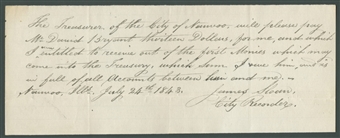 The Treasurer of the City of Nauvoo, will please pay
Mr. David Bryant thirteen Dollars, for me, and which
I intitled to receive out of the first Monies which may
come into the Treasury, which sum I owe him, and is
in full of all Accounts between him and me.
Nauvoo, Ills. July 24th 1843. James Sloan
City Recorder